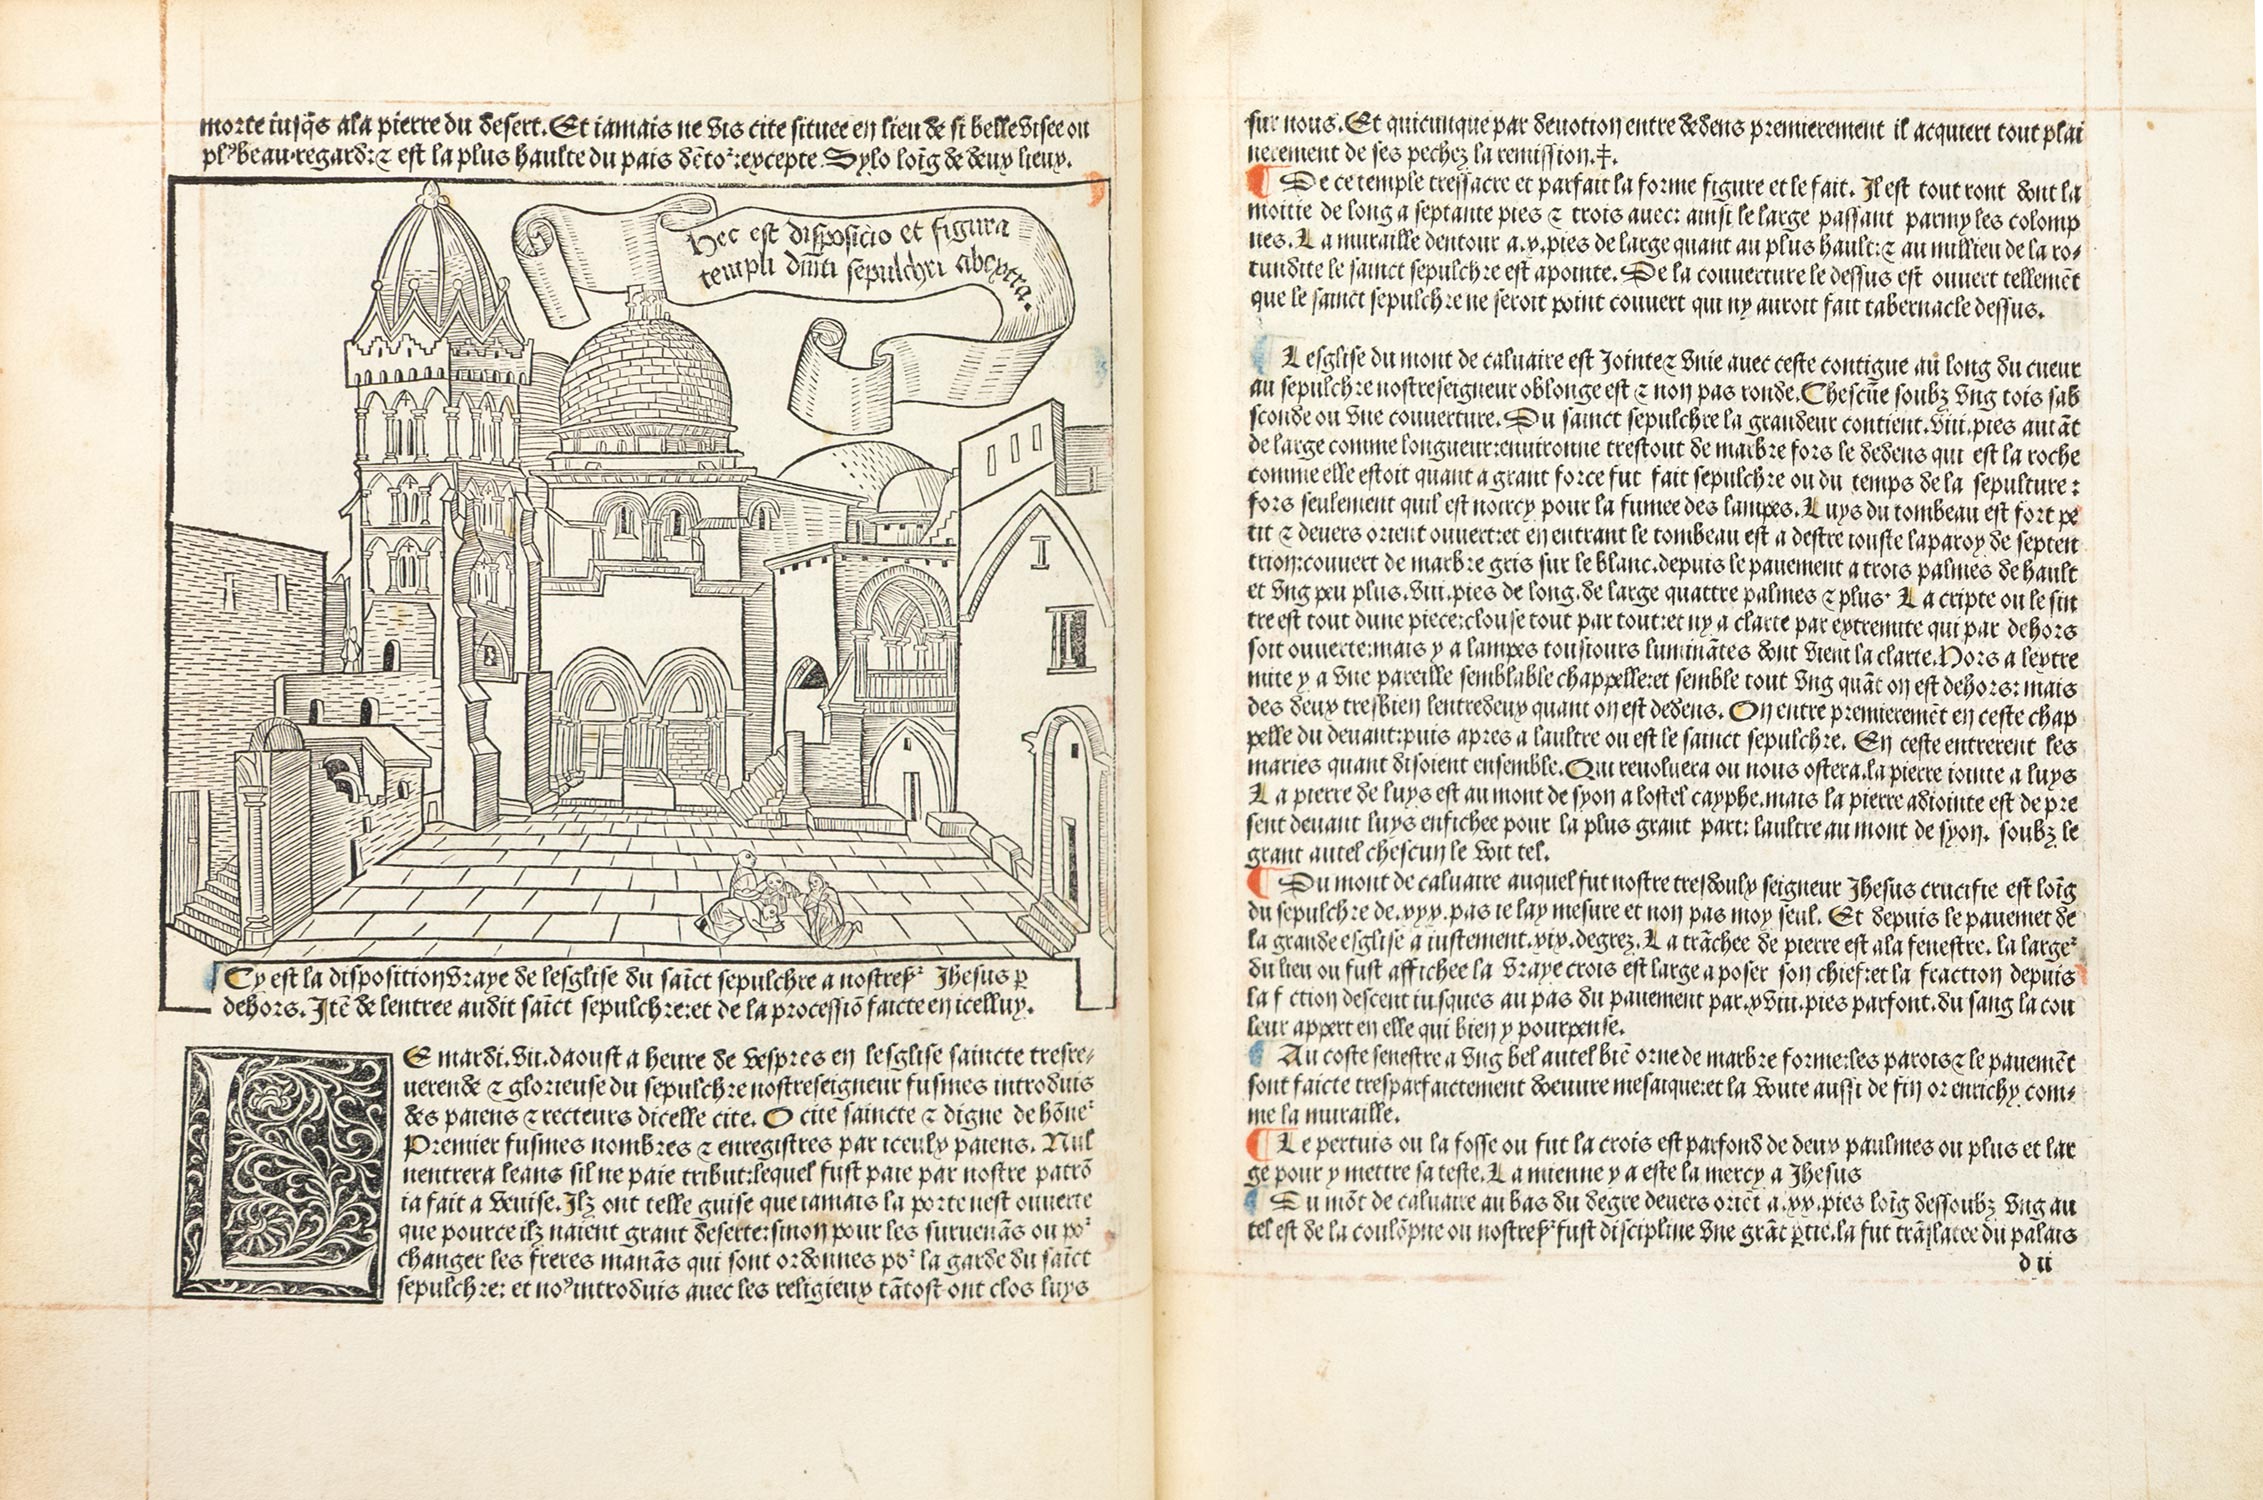 morte iusq̄s ala pierre du desert. Et iamais ne vis cite situee en lieu de si belle visee ou
plꝰ beau regard: ⁊ est la plus haulte du pais dētoᷣ: excepte Sylo loīg de deux lieux.
Hec est disposicio et figura
templi dm̄ti sepulchri abextra.
Cy est la disposition vraye de lesglise du saīct sepulchre a nostreſꝛ Jhesus ꝑ
dehors. Jtē de lentree audit saīct sepulchre: et de la processiō faicte en icelluy.
LE mardi. vii. daoust a heure de vespres en lesglise saincte tresre-
uerende ⁊ glorieuse du sepulchre nostreseigneur fusmes introduis
des paiens ⁊ recteurs dicelle cite. O cite saincte ⁊ digne de hōneᷣ
Premier fusmes nombres ⁊ enregistres par iceulx paiens. Nul
nentrera leans sil ne paie tribut: lequel fust paie par nostre patrō
ia fait a Venise. Jlz ont telle guise que iamais la porte nest ouuerte
que pource ilz naient grant deserte: sinon pour les suruenās ou poᷣ
changer les freres manās qui sont ordonnes poᷣ la garde du saīct
sepulchre: et noꝰ introduis auec les religieux tātost ont clos luys
sur nous. Et quicunque par deuotion entre dedens premierement il acquiert tout plai
nerement de ses pechez la remission. ‡.
De ce temple tressacre et parfait la forme figure et le fait. Jl est tout ront dont la
moitie de long a septante pies ⁊ trois auec: ainsi le large passant parmy les colomp
nes. La muraille dentour a. x. pies de large quant au plus hault: ⁊ au millieu de la ro-
tundite le sainct sepulchre est apointe. De la couuerture le dessus est ouuert tellemēt
que le sainct sepulchre ne seroit point couuert qui ny auroit fait tabernacle dessus.
Lesglise du mont de caluaire est Jointe ⁊ vnie auec ceste contigue au long du cueur
au sepulchre nostreseigneur oblonge est ⁊ non pas ronde. Chescūe soubz vng tois sab
sconde ou vne couuerture. Du sainct sepulchre la grandeur contient. viii. pies autāt
de large comme longueur: enuironne trestout de marbre fors le dedens qui est la roche
comme elle estoit quant a grant force fut fait sepulchre ou du temps de la sepulture:
fors seulement quil est noircy pour la fumee des lampes. Luys du tombeau est fort pe
tit ⁊ deuers orient ouuert: et en entrant le tombeau est a destre iouste laparoy de septen
trion: couuert de marbre gris sur le blanc. depuis le pauement a trois palmes de hault
et vng peu plus. viii. pies de long. de large quattre palmes ⁊ plus. La cripte ou le sin
tre est tout dune piece: clouse tout par tout: et ny a clarte par extremite qui par dehors
soit ouuerte: mais y a lampes tousiours luminātes dont vient la clarte. Hors a lextre
mite y a vne pareille semblable chappelle: et semble tout vng quāt on est dehors: mais
des deux tresbien lentredeux quant on est dedens. On entre premieremēt en ceste chap
pelle du deuant: puis apres a laultre ou est le sainct sepulchre. En ceste entrerent les
maries quant disoient ensemble. Qui reuoluera ou nous ostera. la pierre iointe a luys
La pierre de luys est au mont de syon a lostel cayphe. mais la pierre adiointe est de pre
sent deuant luys enfichee pour la plus grant part: laultre au mont de syon. soubz le
grant autel chescun le voit tel.
Du mont de caluaire auquel fut nostre tresdoulx seigneur Jhesus crucifie est loīg
du sepulchre de. xxx. pas ie lay mesure et non pas moy seul. Et depuis le pauemēt de
la grande esglise a iustement. xix. degrez. La trāchee de pierre est ala fenestre. la largeᷣ
du lieu ou fust affichee la vraye crois est large a poser son chief: et la fraction depuis
la f ction descent iusques au pas du pauement par. xviii. pies parfont. du sang la cou
leur appert en elle qui bien y pourpense.
Au coste senestre a vng bel autel biē orne de marbre forme: les parois ⁊ le pauemēt
sont faicte tresparfaictement doeuure mesaique: et la voute aussi de fin or enrichy com-
me la muraille.
Le pertuis ou la fosse ou fut la crois est parfond de deux paulmes ou plus et lar
ge pour y mettre sa teste. La mienne y a este la mercy a Jhesus
Du mōt de caluaire au bas du degre deuers oriēt a. xx. pies loīg dessoubz vng au
tel est de la coulōpne ou nostreſꝛ fust discipline vne grāt ꝑtie. la fut trāslatee du palais
d ii